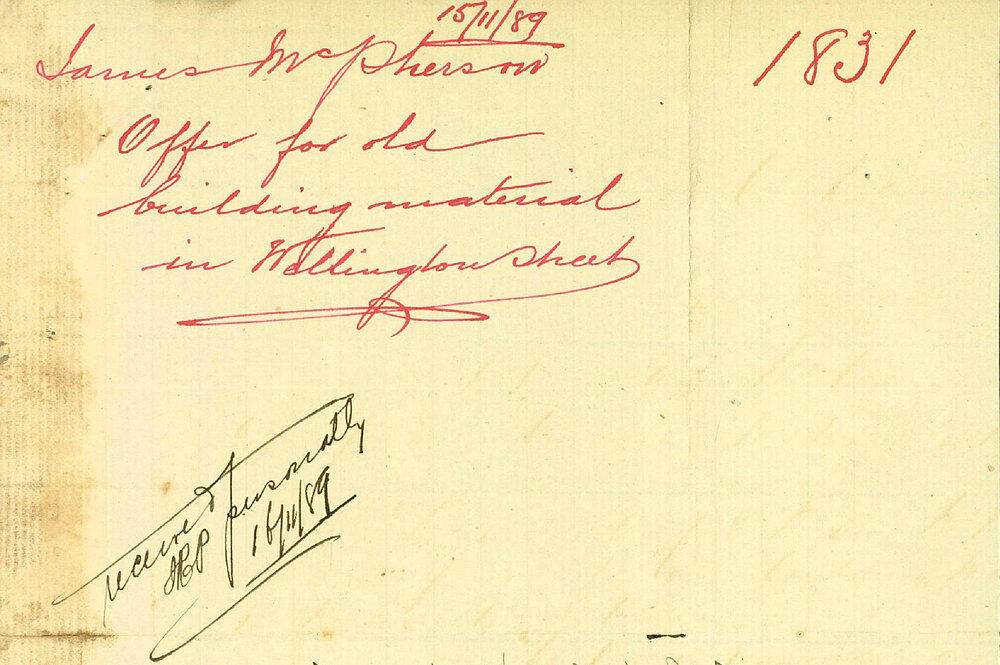 15/11/89
James McPherson 1831
Offer for old
building material
in Wellington Street
received personally
16/11/89